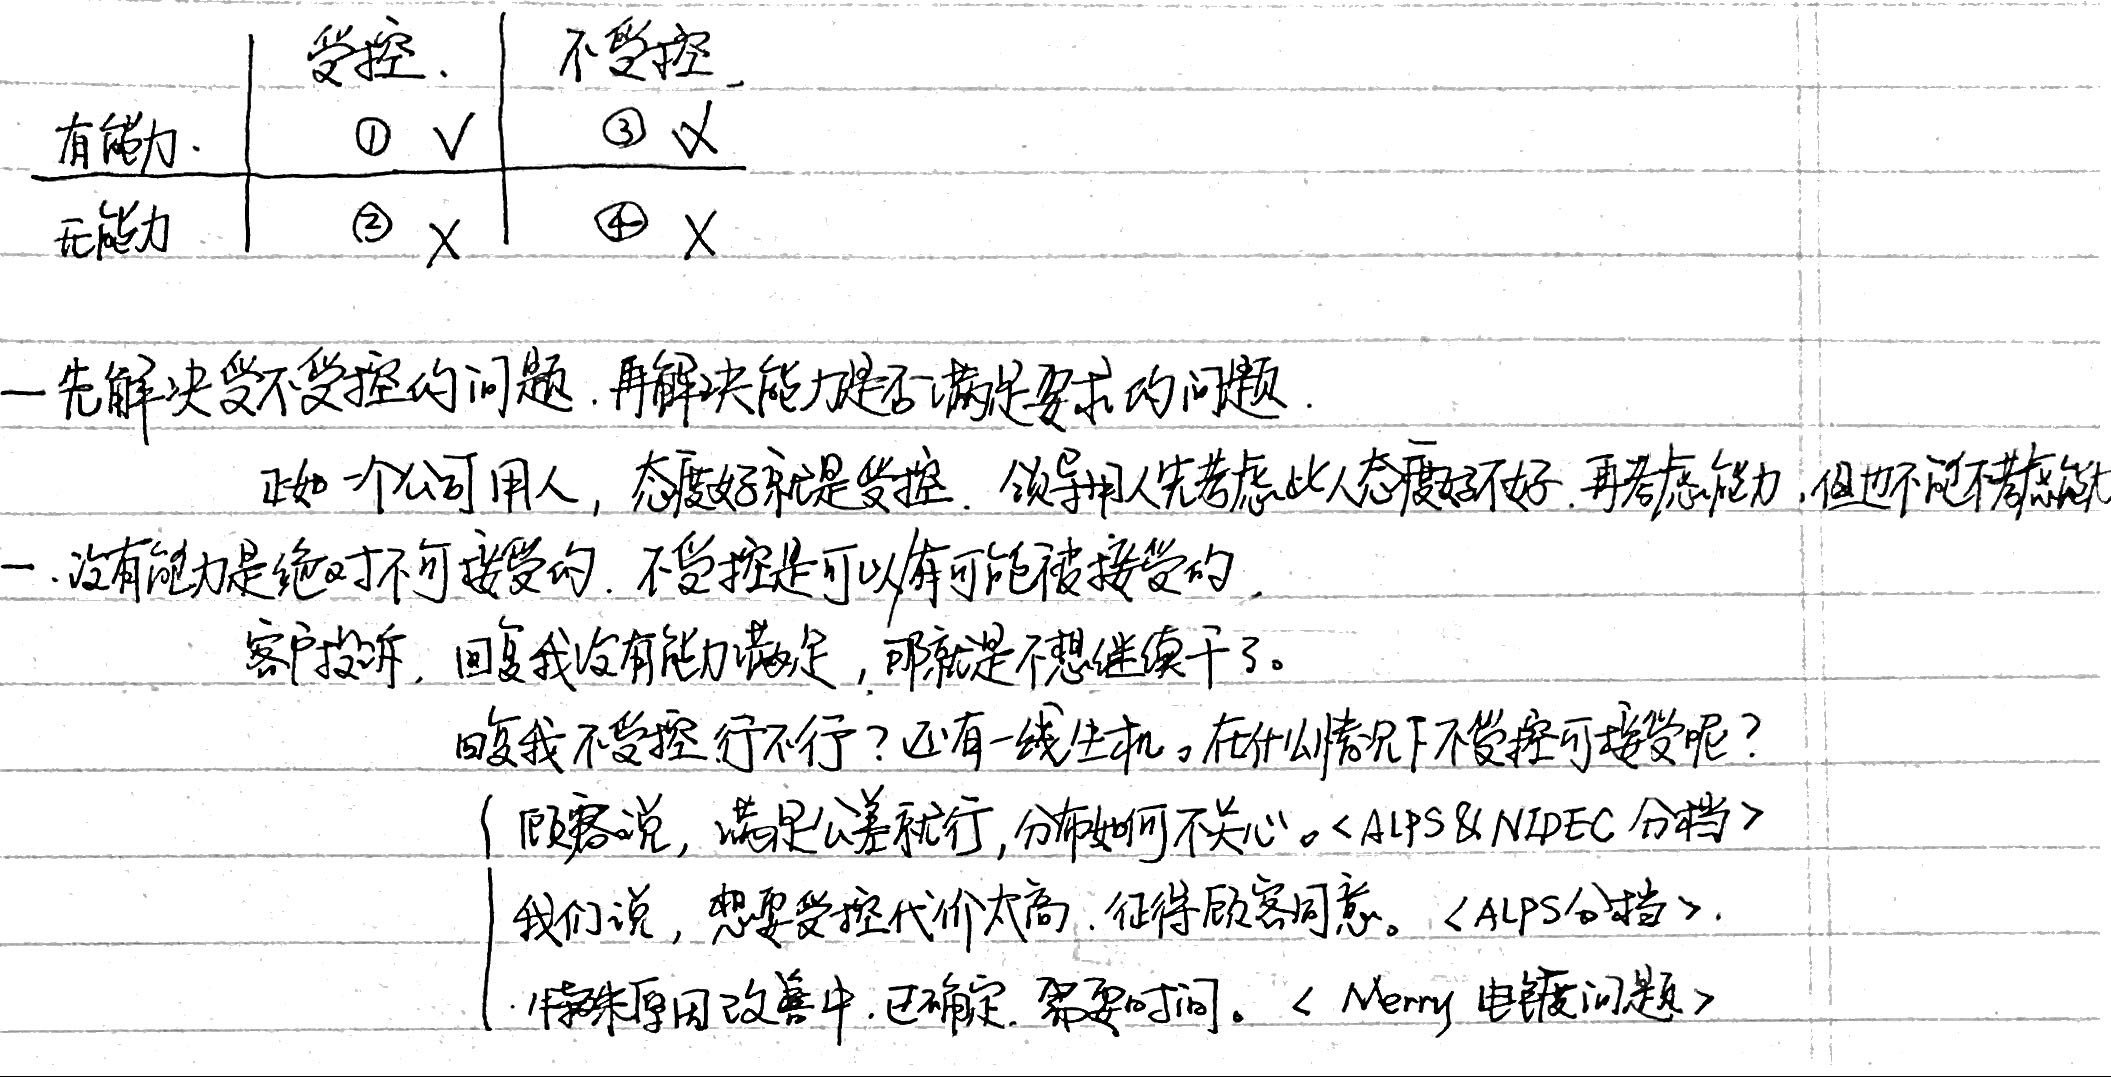 受控. 不受控.
有能力. ① √ ③ X
无能力 ② X ④ X
一先解决受不受控的问题.再解决能力是否满足要求的问题.
正如一个公司用人,态度好就是受控. 领导用人先考虑此人态度好不好.再考虑能力,但也不能不考虑能力
一.没有能力是绝对不可接受的. 不受控是可以有可能被接受的.
客户投诉, 回复我没有能力满足,那就是不想继续干了。
回复我不受控行不行?还有一线生机。在什么情况下不受控可接受呢?
顾客说,满足公差就行,分布如何不关心。<ALPS&NIDEC 分档>
我们说,想要受控代价太高.征得顾客同意。 <ALPS分档>.
.特殊原因改善中.已确定.需要时间。 < Merry 电镀问题>